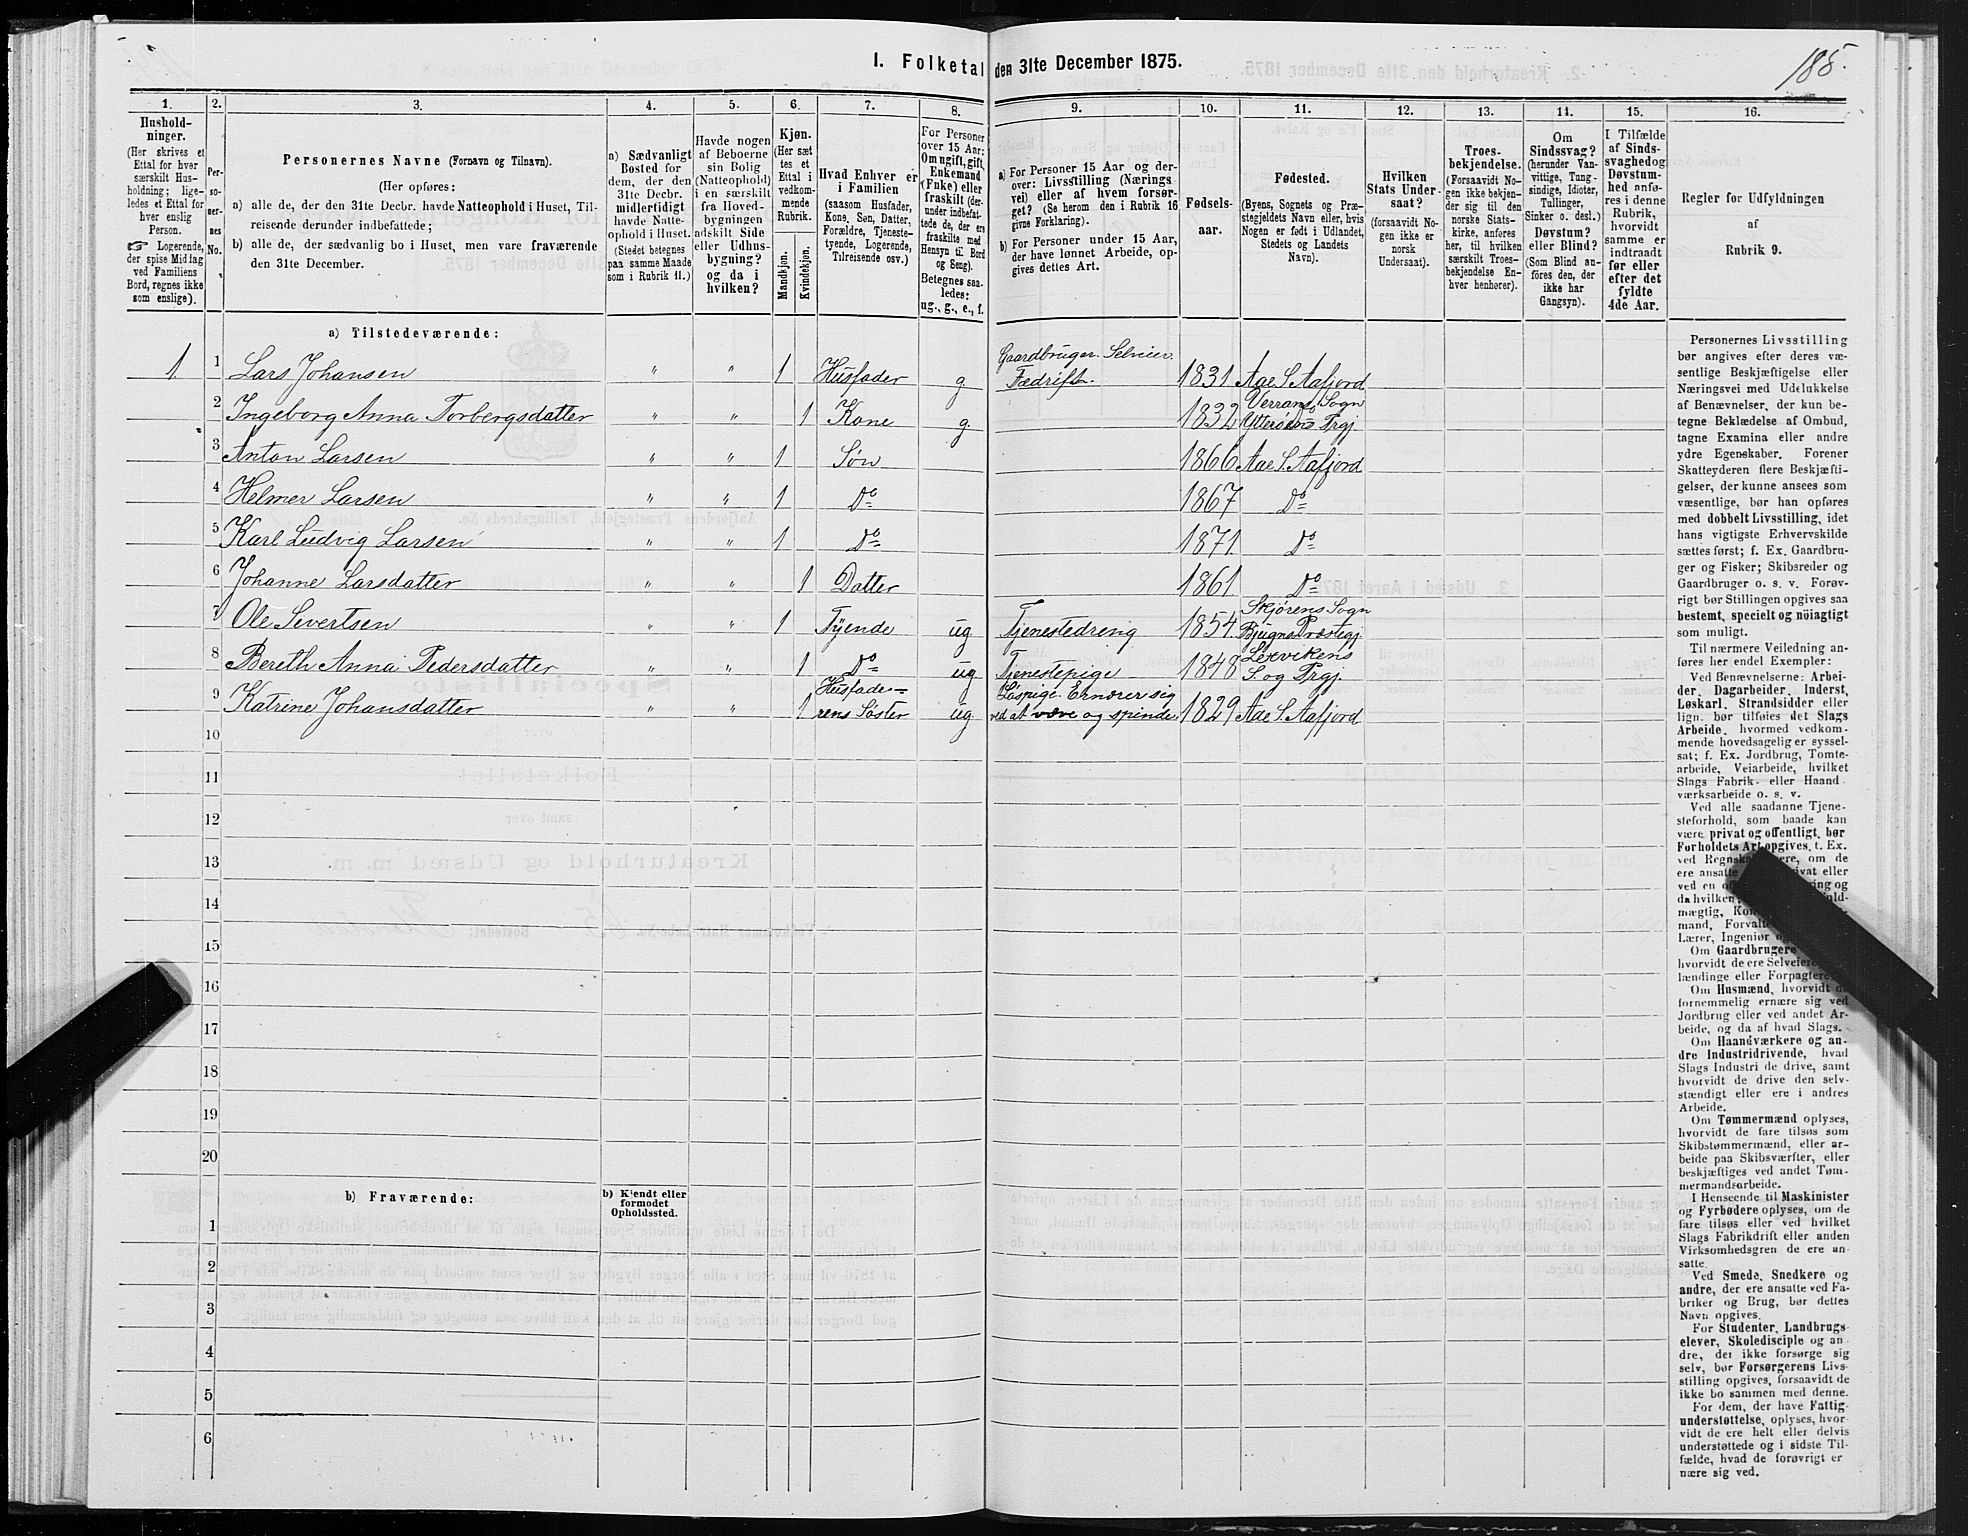 185.
I. Folketal den 31te December 1875.
1. 2. 3. 4. 5. 6. 7. 8. 9. 10. 11. 12. 13. 14. 15. 16.
Hushold-
ninger.
(Her skrives et
Ettal for hver
særskilt Hus-
holdning; lige-
ledes et Ettal for
hver enslig
Person.
☞ Logerende,
der spise Middag
ved Familiens
Bord, regnes ikke
som enslige).
Per-
so-
ner-
nes
No.
Personernes Navne (Fornavn og Tilnavn).
(Her opføres:
a) alle de, der den 31te Decbr. havde Natteophold i Huset, Til-
reisende derunder indbefattede;
b) alle de, der sædvanlig bo i Huset, men vare fraværende
den 31te December.
a) Sædvanligt
Bosted for
dem, der den
31te Decbr.
midlertidigt
havde Natte-
ophold i Huset.
(Stedet betegnes
paa samme Maade
som i Rubrik 11.)
Havde nogen
af Beboerne
sin Bolig
(Natteophold)
i en særskilt
fra Hoved-
bygningen
adskilt Side
eller Udhus-
bygning?
og da i
hvilken?
Kjøn.
(Her sæt
tes et
Ettal i
vedkom-
mende
Rubrik.
Mandkjøn.
Kvindekjøn.
Hvad Enhver er
i Familien
(saasom Husfader,
Kone, Søn, Datter,
Forældre, Tjeneste-
tyende, Logerende,
Tilreisende osv.)
For Personer
over 15 Aar:
Om ugift, gift,
Enkemand
(Enke) eller
fraskilt (der-
under indbefat-
tede de, der ere
fraskilte med
Hensyn til Bord
og Seng).
Betegnes saa-
ledes:
ug., g., e., f.
a) For Personer 15 Aar og der-
over: Livsstilling (Nærings
vei) eller af hvem forsør-
get? (Se herom den i Rubrik 16
givne Forklaring).
b) For Personer under 15 Aar,
der have lønnet Arbeide, op-
gives dettes Art.
Fødsels-
aar.
Fødested.
(Byens, Sognets og Præ-
stegjeldets Navn eller, hvis
Nogen er født i Udlandet,
Stedets og Landets
Navn).
Hvilken
Stats Under-
saat?
(forsaavidt No-
gen ikke er
norsk
Undersaat).
Troes-
bekjendelse.
(Forsaavidt No-
gen ikke bekjen-
der sig til den
norske Stats-
kirke, anføres
her, til hvilken
særskilt Troes-
bekjendelse En-
hver henhører).
Om
Sindssvag?
(herunder Van-
vittige, Tung-
sindige, Idioter,
Tullinger,
Sinker o. desl.)
Døvstum?
eller Blind?
(Som Blind an-
føres den, der
ikke har
Gangsyn).
I Tilfælde
af Sinds-
svaghed og
Døvstum-
hed anfø-
res i denne
Rubrik,
hvorvidt
samme er
indtraadt
før eller
efter det
fyldte
4de Aar.
Regler for Udfyldningen
af
Rubrik 9.
a) Tilstedeværende:
1 1 Lars Johansen " " 1 Husfader g Gaardbruger. Selveier. Fædrift. 1831 Aae S. Aafjord
2 Ingeborg Anna Torbergsdatter " " 1 Kone g. 1832 Verrans Sogn Ytterøens Prgj.
3 Anton Larsen " " 1 Søn 1866 Aae S. Aafjord
4 Helmer Larsen " " 1 Do 1867 Do
5 Karl Ludvig Larsen " " 1 Do 1871 Do
6 Johanne Larsdatter " " 1 Datter 1861 Do
7 Ole Severtsen " " 1 Tyende ug Tjenestedreng 1854 Skjørens Sogn Bjugns Præstegj.
8 Bereth Anna Pedersdatter " " 1 Do ug Tjenestepige 1848 Lexvikens S. og Prgj.
9 Katrine Johansdatter " " 1 Husfaderens Søster ug Løspige. Ernærer sig ved at væve og spinde. 1829 Aae S. Aafjord
10
11
12
13
14
15
16
17
18
19
20
b) Fraværende:
b) Kjendt eller
formodet
Opholdssted.
1
2
3
4
5
6
Personernes Livsstilling
bør angives efter deres væ-
sentlige Beskjæftigelse eller
Næringsvei med Udelukkelse
af Benævnelser, der kun be-
tegne Beklædelse af Ombud,
tagne Examina eller andre
ydre Egenskaber. Forener
Skatteyderen flere Beskjæfti-
gelser, der kunne ansees som
væsentlige, bør han opføres
med dobbelt Livsstilling, idet
hans vigtigste Erhvervskilde
sættes først; f. Ex. Gaardbru-
ger og Fisker; Skibsreder og
Gaardbruger o. s. v. Forøv-
rigt bør Stillingen opgives saa
bestemt, specielt og nøiagtigt
som muligt.
Til nærmere Veiledning an-
føres her endel Exempler:
Ved Benævnelserne: Arbei-
der, Dagarbeider, Inderst,
Løskarl, Strandsidder eller
lign. bør tilføies det Slags
Arbeide, hvormed vedkom-
mende hovedsagelig er syssel-
sat; f. Ex. Jordbrug, Tomte-
arbeide, Veiarbeide, hvilket
Slags Fabrik- eller Haand-
værksarbeide o. s. v.
Ved alle saadanne Tjene-
steforhold, som baade kan
være privat og offentligt, bør
Forholdets Art opgives, t. Ex.
ved om de
ere ansatte
ved en
da hvilken,
mægtig,
mand,
Lærer, Ingeniør
Om Gaardbrugere
hvorvidt de ere Selveiere,
lændinge eller
Om Husmænd, hvorvidt de
fornemmelig ernære sig ved
Jordbrug eller ved andet Ar-
beide, og da af hvad Slags.
Om Haandværkere og an-
dre Industridrivende, hvad
Slags Industri de drive, samt
hvorvidt de drive den selv-
stændigt eller ere i andres
Arbeide.
Om Tømmermænd oplyses,
hvorvidt de fare tilsøs som
Skibstømmermænd, eller ar-
beide paa Skibsværfter, eller
beskjæftiges ved andet Tøm-
mermandsarbeide.
I Henseende til Maskinister
og Fyrbødere oplyses, om de
fare tilsøs eller ved hvilket
Slags Fabrikdrift eller anden
Virksomhedsgren de ere an-
satte.
Ved Smede, Snedkere og
andre, der ere ansatte ved Fa-
briker og Brug, bør dettes
Navn opgives.
For Studenter, Landbrugs-
elever, Skoledisciple og an-
dre, der ikke forsørge sig
selv, bør Forsørgerens Livs-
stilling opgives, forsaavidt de
ikke bo sammen med denne.
For dem, der have Fattig-
understøttelse, oplyses, hvor-
vidt de ere helt eller delvis
understøttede og i sidste Til-
fælde, hvad de forøvrigt er
nære sig ved.